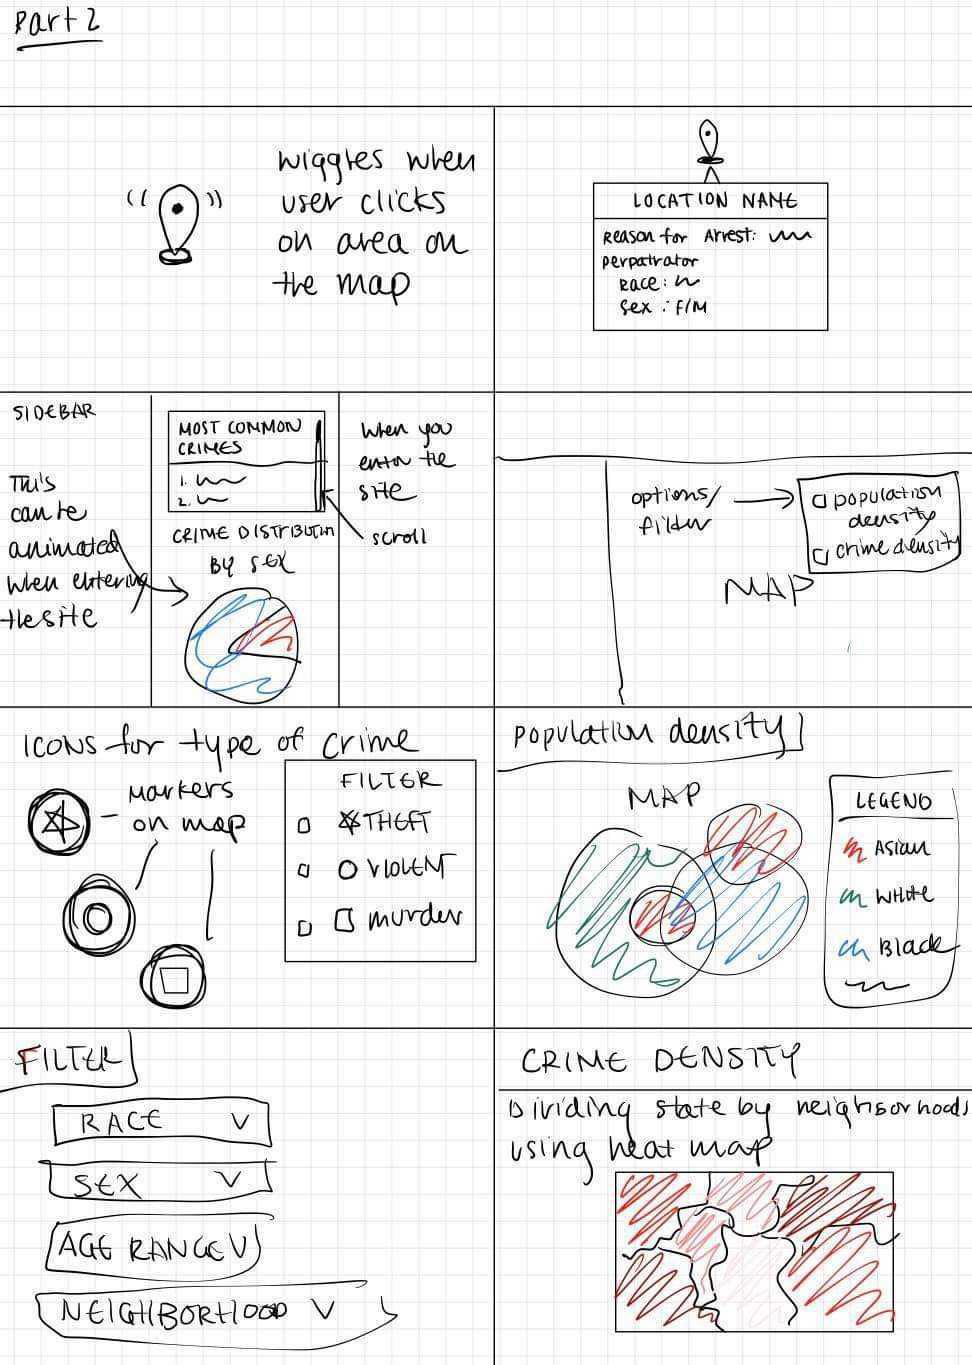 Part 2
wiggles when
user clicks
on area on
the map
LOCATION NAME
Reason for Arrest:
perpatrator
Race:
Sex : F/M
SIDEBAR
This
can be
animated
when entering
the site
MOST COMMON
CRIMES
1.
2.
CRIME DISTRIBUTIN
BY SEX
when you
enter the
site
scroll
options/
filter
population
density
crime density
MAP
ICONS for type of crime
markers
on map
FILTER
THEFT
VIOLENT
murder
population density
MAP
LEGEND
Asian
White
Black
FILTER
RACE
SEX
AGE RANGE
NEIGHBORHOOD
CRIME DENSITY
Dividing state by neighborhoods
using heat map